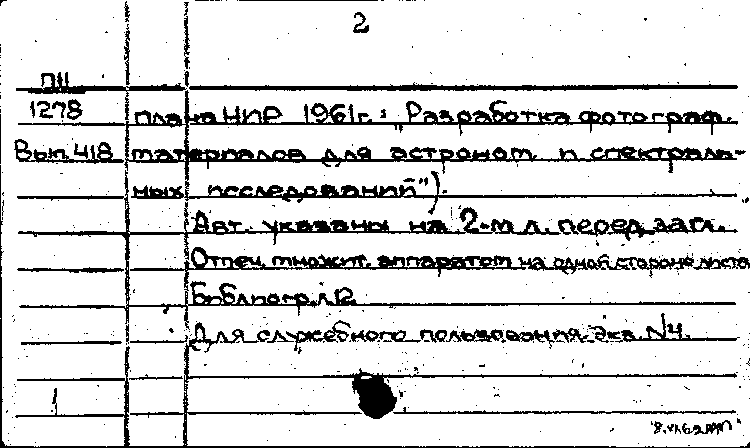 2
ПII
1278 плана НИР 1961г.: „Разработка фотограф.
Вып. 418 материалов для астроном. и спектраль-
ных исследований").
Авт. указаны на 2-м л. перед загл.
Отпеч. множит. аппаратом на одной стороне листа
Библиогр. л. 12.
Для служебного пользования. Экз. №4.
1